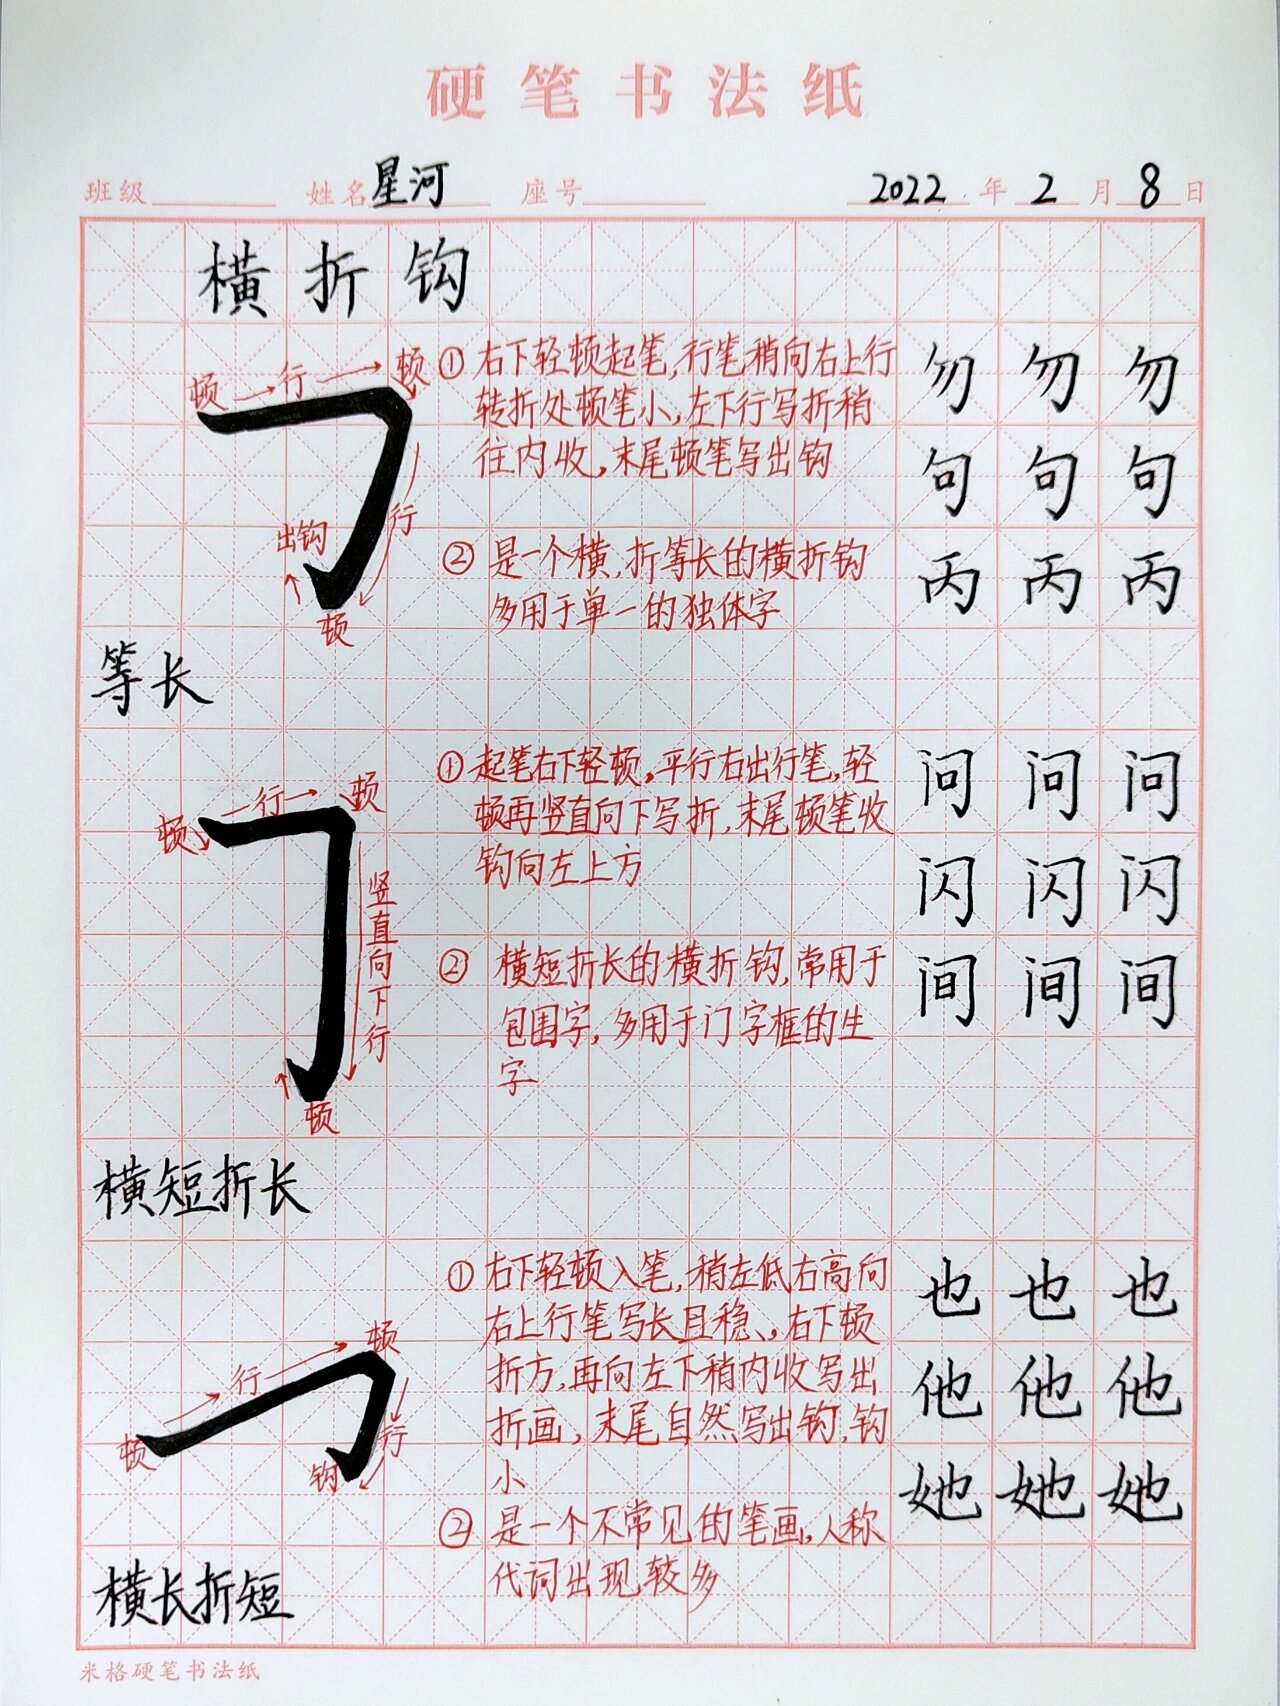 硬笔书法纸
班级 姓名 星河 座号 2022 年 2 月 8 日
横折钩
顿 行 顿
行
出钩
顿
等长
①右下轻顿起笔,行笔稍向右上行
转折处顿笔小,左下行写折稍
往内收,末尾顿笔写出钩
②是一个横,折等长的横折钩
多用于单一的独体字
勿 勿 勿
句 句 句
丙 丙 丙
顿 行 顿
竖直向下行
顿
横短折长
①起笔右下轻顿,平行右出行笔,轻
顿再竖直向下写折,末尾顿笔收
钩向左上方
②横短折长的横折钩,常用于
包围字,多用于门字框的生
字
问 问 问
闪 闪 闪
间 间 间
顿 行 顿
行
钩
横长折短
①右下轻顿入笔,稍左低右高向
右上行笔写长且稳、,右下顿
折方,再向左下稍内收写出
折画,末尾自然写出钩,钩
小
②是一个不常见的笔画,人称
代词出现较多
也 也 也
他 他 他
她 她 她
米格硬笔书法纸